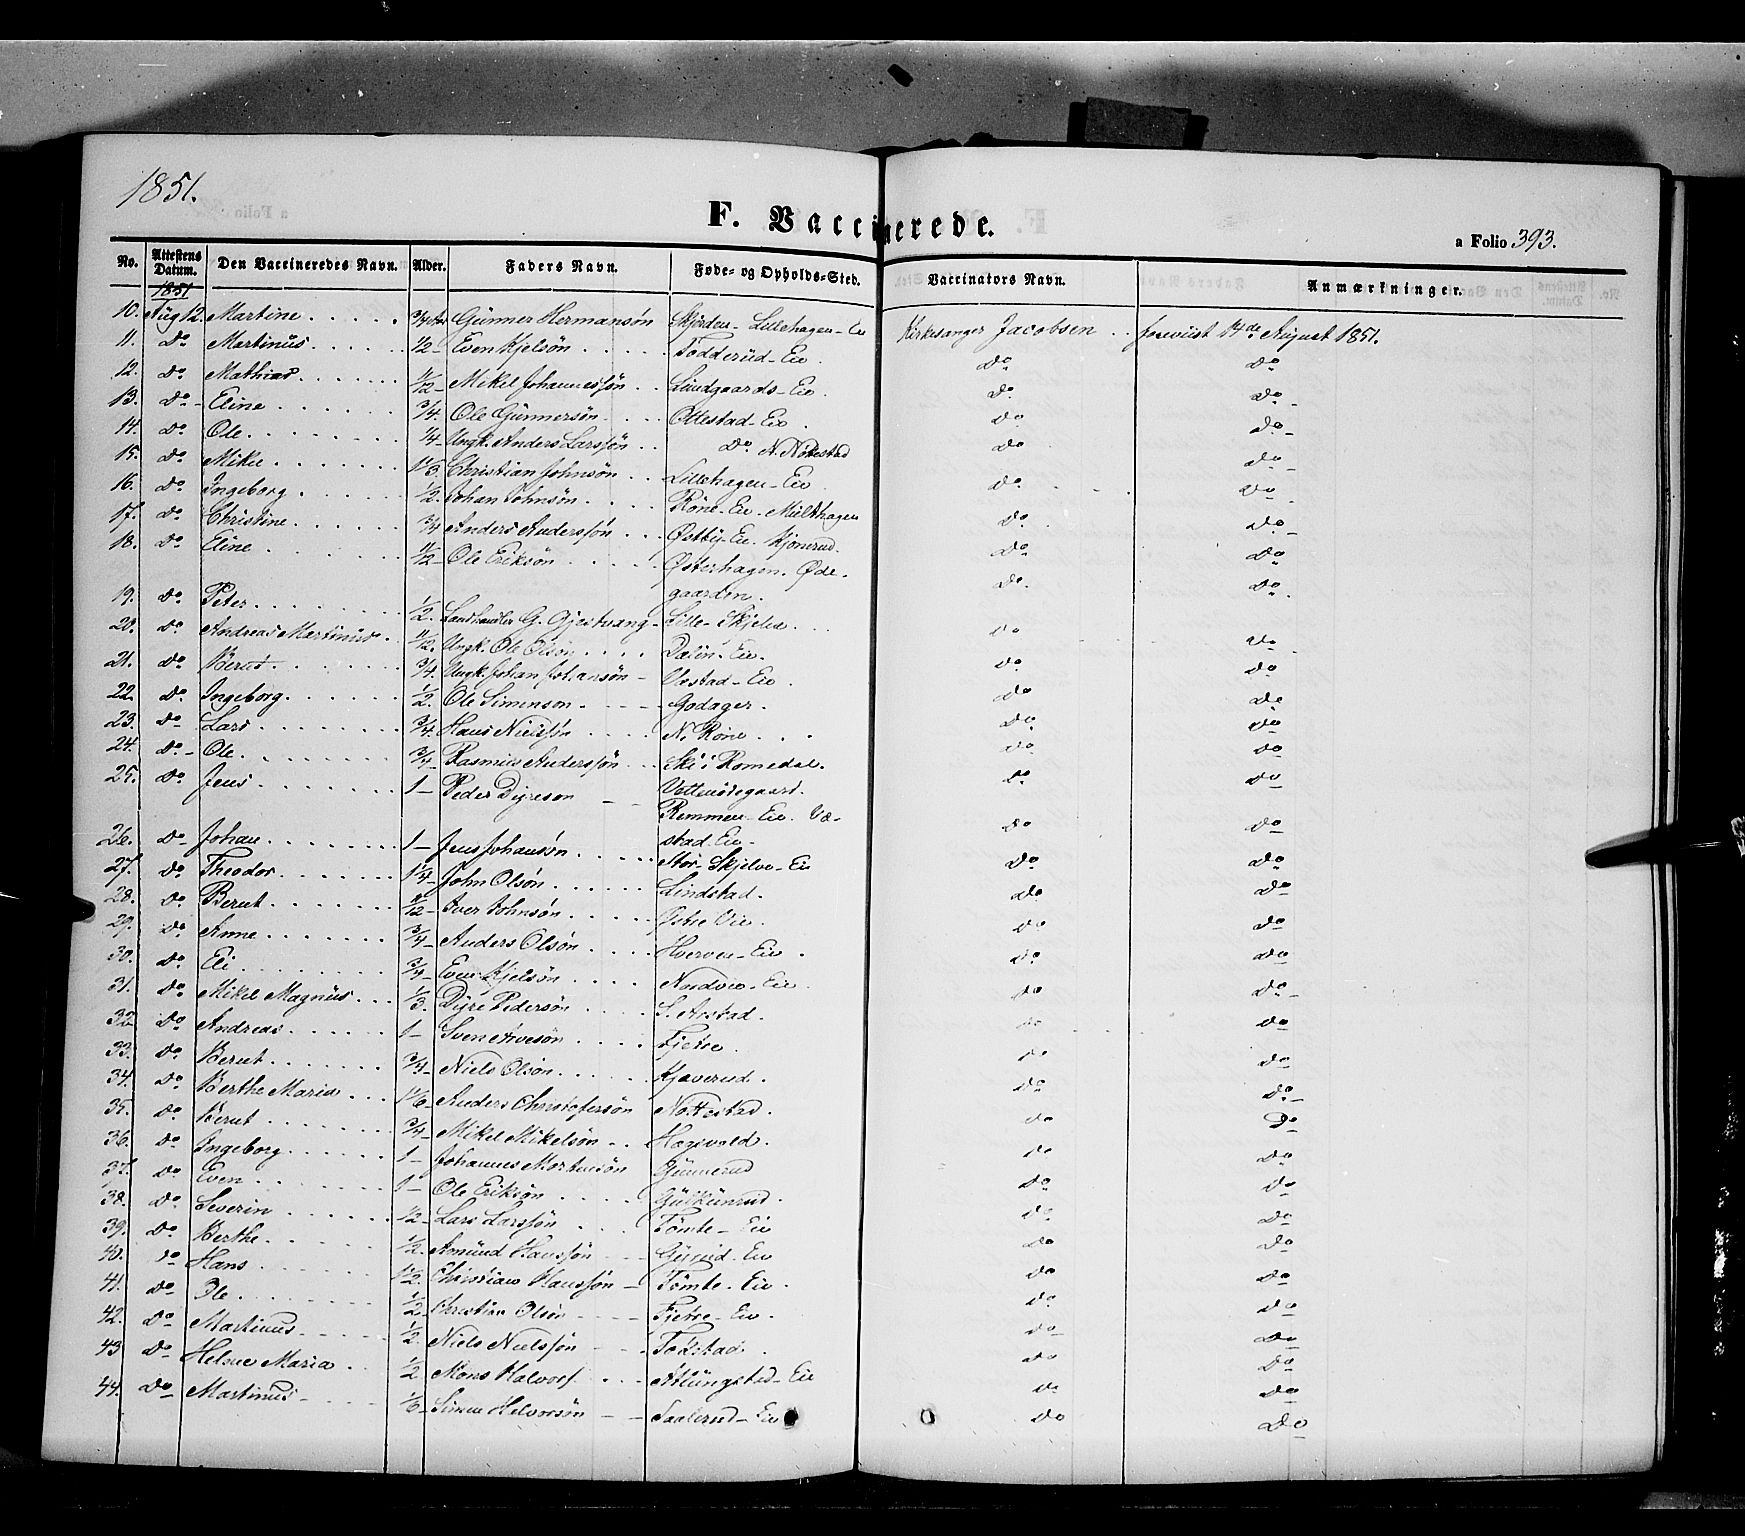 1851.
F. Vaccinerede.
a Folio 393.
No. Attestens Datum. Den Vaccineredes Navn. Alder. Faders Navn. Føde- og Opholds-Sted. Vaccinators Navn. Anmærkninger.
1851
10. Aug 12. Martine 3/4 Aar Gunner Hermansøn Lillehagen-Eie Kirkesanger Jacobsen foreviist 14de August 1851.
11. Do Martinus 1/2 Even Kjelsøn Todderud-Eie. Do Do
12. Do Mathias Mikel Johannessøn Lundgaards-Eie. Do Do
13. Do Eline 3/4. Ole Gunnersøn Ottestad-Eie. Do Do
14. Do Ole 1/4 Ungk. Anders Larssøn Do N. Nøttestad Do Do
15. Do Christian Johnsøn Lillehagen-Eie Do Do
16. Do Ingeborg 1/2. Johan Johnsøn Røne-Eie. Do Do
17. Do Christine 3/4 Anders Anderssøn Østby-Eie. Kjonerud. Do Do
18. Do Eline 11/12 Ole Eriksøn Østerhagen. Øde-
gaarden. Do Do
19. Do Peter 1/2. Landhandler G. Gjestvang Lille-Skjelve. Do Do
20. Do Andreas Martinus 11/12. Ungk. Ole Olsøn Dælin-Eie. Do Do
21. Do Berut 3/4. Ungk. Johan Johansøn Vestad-Eie. Do Do
22. Do Ingeborg 1/2. Ole Simensøn Godager. Do Do
23. Do Lars 3/4. Hans Nielssøn N. Røne Do Do
24. Do Ole 3/4 Rasmus Anderssøn Ski i Romedal. Do Do
25. Do Jens 1 Peder Dyresøn Vettenødegaard.
Remmen-Eie. Væ-
26. Do Johan 1 Jens Johansøn stad-Eie. Do Do
27. Do Theodor 1 1/4 John Olsøn Stor-Skjelve-Eie Do Do
28. Do Berut Iver Johnsøn Lindstad. Do Do
29. Do Anne 3/4 Anders Olsøn Østre Vie. Do Do
30. Do Eli 3/4 Even Kjelsøn Hverven-Eie. Do Do
31. Do Mikel Magnus 1/3. Dyre Pedersøn Nordvie-Eie. Do Do
32. Do Andreas 1 Sven S. Arstad. Do Do
33. Do Berut 3/4 Niels Olsøn Fjetre. Do Do
34. Do Berthe Maria 1 1/6 Anders Christofersøn Kjaverud. Do Do
35. Do Berut 3/4 Mikel Mikelsøn Nøttestad. Do Do
36. Do Ingeborg 1 Johannes Mortensøn Hagevold. Do Do
37. Do Even 1 Ole Eriksøn Gunnerud Do Do
38. Do Severin 1/2 Lars Larssøn Gulkunrud. Do Do
39. Do Berthe 1/2 Amund Hanssøn Tomte-Eie Do Do
40. Do Hans 1/2. Christian Hanssøn Gyrud-Eie Do Do
41. Do Ole 1/2 Christian Olsøn Tomte-Eie. Do Do
42. Do Martinus 1/2. Niels Nielssøn Fjetre-Eie. Do Do
43 Do Helene Maria 1/2 Mons Halvors. Tokstad. Do Do
44. Do Martinus 1/6 Simen Halvorsøn Atlungstad-Eie Do Do
Saalerud-Eie Do Do